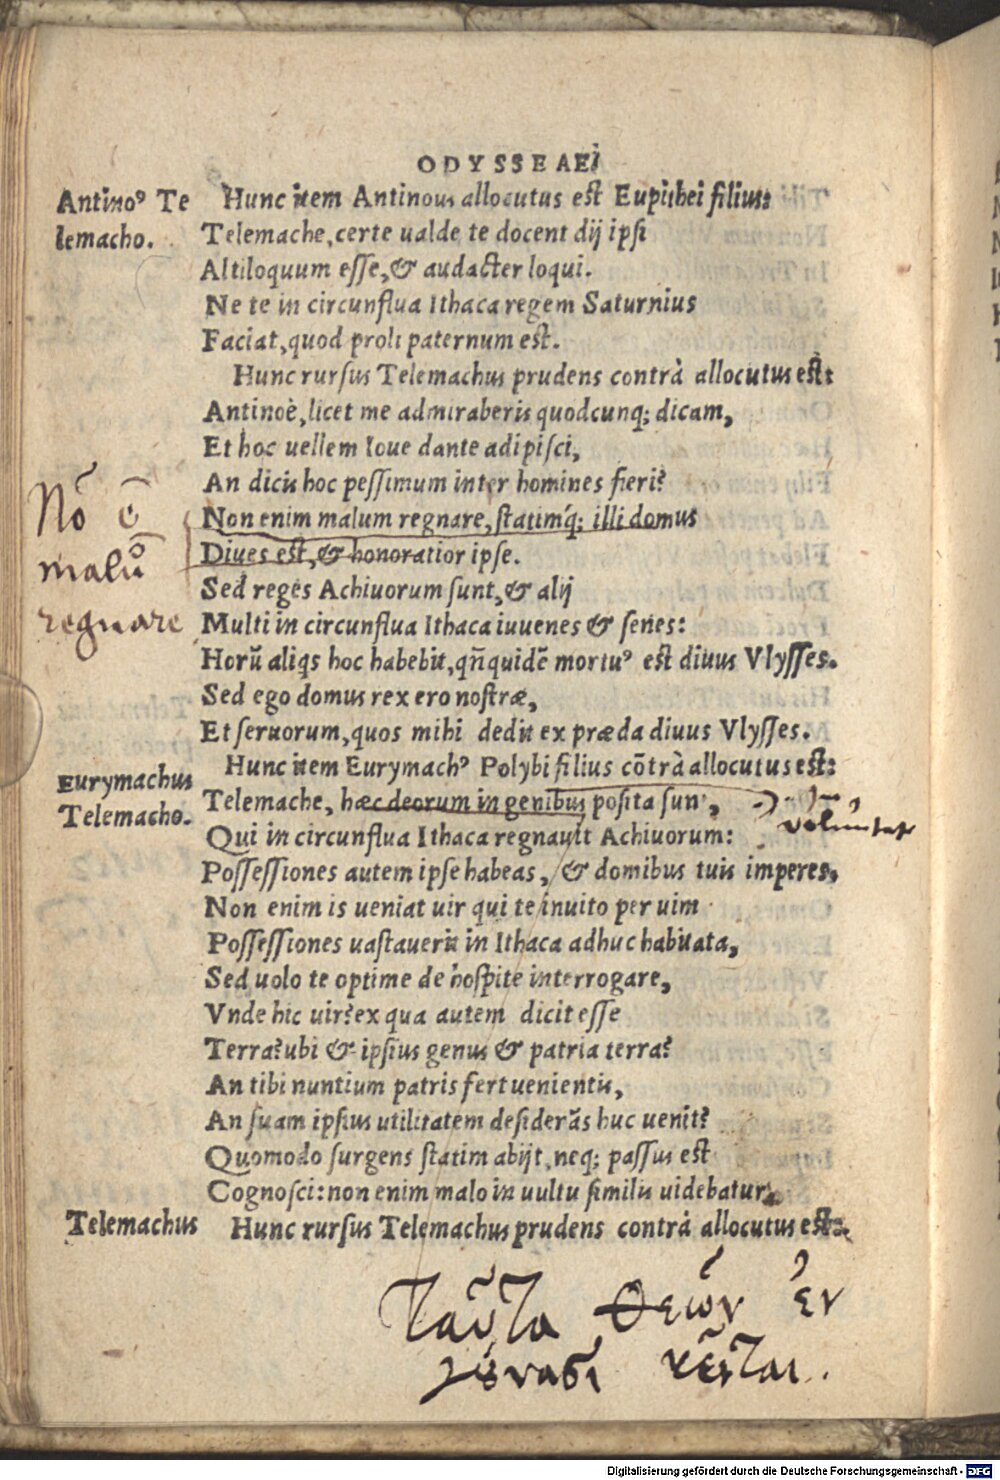 ODYSSEAE
Antino⁹ Te
lemacho.
Hunc item Antinous allocutus est Eupithei filius:
Telemache, certe ualde te docent dij ipsi
Altiloquum esse, & audacter loqui.
Ne te in circunflua Ithaca regem Saturnius
Faciat, quod proli paternum est.
Hunc rursus Telemachus prudens contrà allocutus est:
Antinoë, licet me admiraberis quodcunq; dicam,
Et hoc uellem Ioue dante adipisci,
An dicis hoc pessimum inter homines fieri?
Nō ē
malū
regnare
Non enim malum regnare, statimq́; illi domus
Diues est, & honoratior ipse.
Sed reges Achiuorum sunt, & alij
Multi in circunflua Ithaca iuuenes & senes:
Horū aliqs hoc habebit, qñquidē mortu⁹ est diuus Vlysses.
Sed ego domus rex ero nostræ,
Et seruorum, quos mihi dedit ex præda diuus Vlysses.
Eurymachus
Telemacho.
Hunc item Eurymach⁹ Polybi filius cōtrà allocutus est:
Telemache, hæc deorum in genibus posita sunt,
voluntat
Qui in circunflua Ithaca regnauit Achiuorum:
Possessiones autem ipse habeas, & domibus tuis imperes,
Non enim is ueniat uir qui te inuito per uim
Possessiones uastauerit in Ithaca adhuc habitata,
Sed uolo te optime de hospite interrogare,
Vnde hic uir? ex qua autem dicit esse
Terra? ubi & ipsius genus & patria terra?
An tibi nuntium patris fert uenientis,
An suam ipsius utilitatem desiderās huc uenit?
Quomodo surgens statim abijt, neq; passus est
Cognosci: non enim malo in uultu similis uidebatur.
Telemachus
Hunc rursus Telemachus prudens contrà allocutus est:
ταῦτα θεῶν ἐν
γουνασι κεῖται.
Digitalisierung gefördert durch die Deutsche Forschungsgemeinschaft - DFG